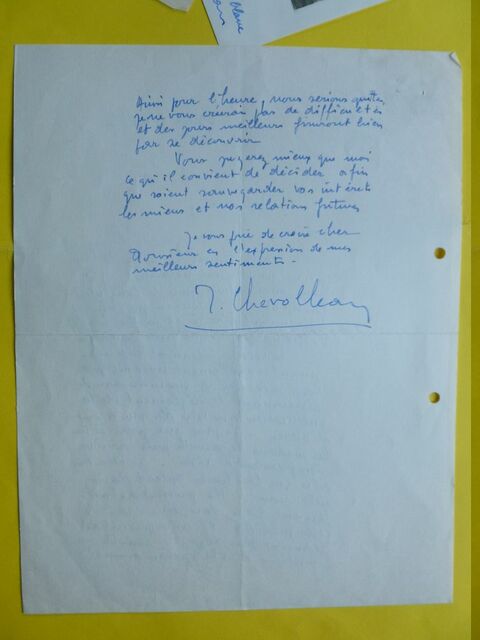 Ainsi pour l'heure, nous serions quittes,
je ne vous créerai pas de difficultés
et des jours meilleurs finiront bien
par se découvrir
Vous jugerez mieux que moi
ce qu'il convient de décider afin
que soient sauvegarder vos intérêts
les miens et nos relations futures
Je vous prie de croire cher
Monsieur en l'expression de mes
meilleurs sentiments.
J. Chevolleau